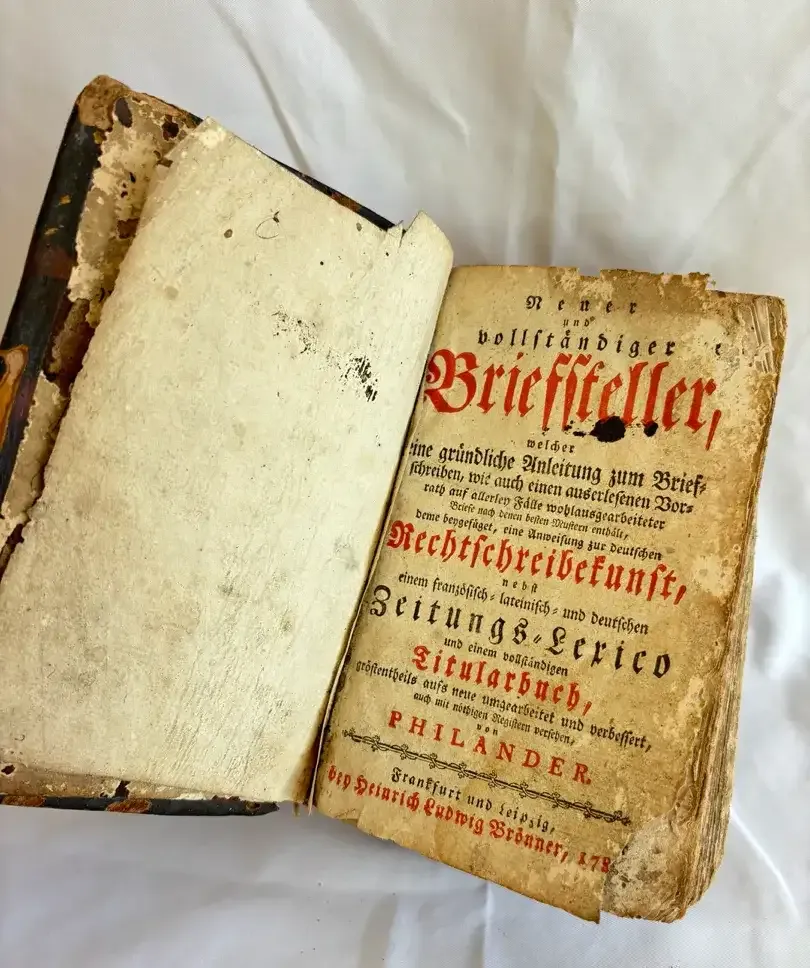 Neuer
und
vollständiger
Briefsteller,
welcher
eine gründliche Anleitung zum Brief-
schreiben, wie auch einen auserlesenen Vor-
rath auf allerley Fälle wohlausgearbeiteter
Briefe nach denen besten Mustern enthält,
deme beygefüget, eine Anweisung zur deutschen
Rechtschreibekunst,
nebst
einem französisch- lateinisch- und deutschen
Zeitungs-Lexico
und einem vollständigen
Titularbuch,
gröstentheils aufs neue umgearbeitet und verbessert,
auch mit nöthigen Registern versehen,
von
PHILANDER.
Frankfurt und Leipzig,
bey Heinrich Ludwig Brönner, 178